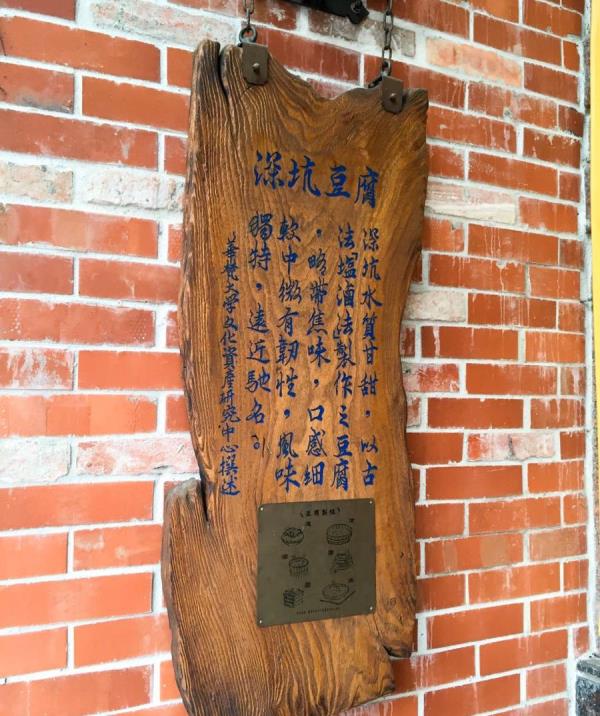 深坑豆腐
深坑水質甘甜，以古
法鹽滷法製作之豆腐
，略帶焦味，口感細
軟中微有韌性，風味
獨特，遠近馳名。
華梵大學文化資產研究中心撰述